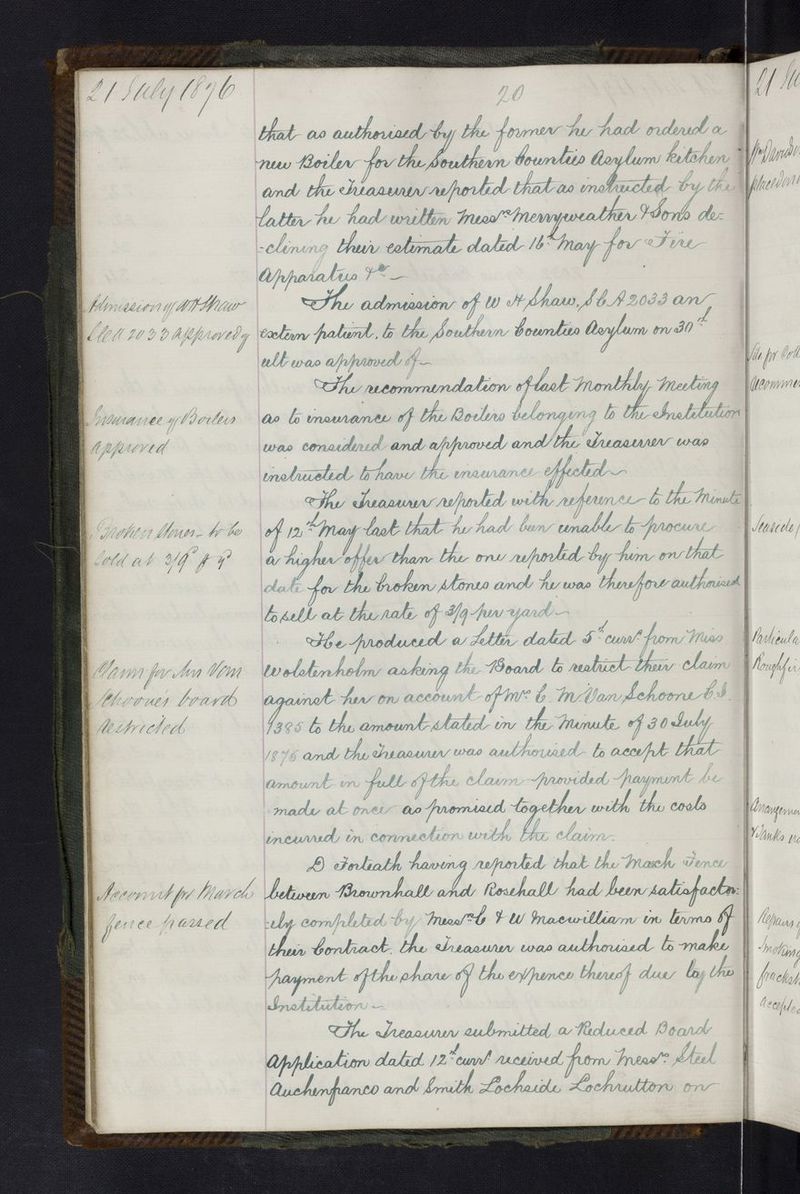 21 July 1896
20
that as authorised by the former he had ordered a
new Boiler for the Southern Counties Asylum kitchen
and the Treasurer reported that as instructed by the
latter he had written Messrs Merryweather & Sons de-
-clining their estimate dated 16th May for Fire
Apparatus &c
Admission of W H Shaw
SCA 2033 approved of
The admission of W H Shaw, SCA 2033 an
extern patient, to the Southern Counties Asylum on 30th
ult was approved of
Insurance of Boilers
approved
The recommendation of last Monthly Meeting
as to insurance of the Boilers belonging to the Institution
was considered and approved and the Treasurer was
instructed to have the insurance effected
Broken stones to be
sold at 3/9d p yd
The Treasurer reported with reference to the Minute
of 12th May last that he had been unable to procure
a higher offer than the one reported by him on that
date for the broken stones and he was therefore authorised
to sell at the rate of 3/9 per yard
Claim for Mrs Van
Schoone's board
restricted
He produced a Letter dated 5th curr from Miss
Wolstenholm asking the Board to restrict their claim
against her on account of Mrs C. M Van Schoone C.I.
1385 to the amount stated in the Minute of 30 July
1876 and the Treasurer was authorised to accept that
amount in full of the claim provided payment be
made at once as promised together with the costs
incurred in connection with the claim.
Account for March
fence passed
D Forteath having reported that the March Fence
between Brownhall and Rosehall had been satisfactor-
-ily completed by Messrs C & W Macwilliam in terms of
their Contract, the Treasurer was authorised to make
payment of the share of the expence thereof due by the
Institution
The Treasurer submitted a Reduced Board
Application dated 12th curr received from Messrs Steel
Auchenfranco and Smith Lochside Lochrutton on